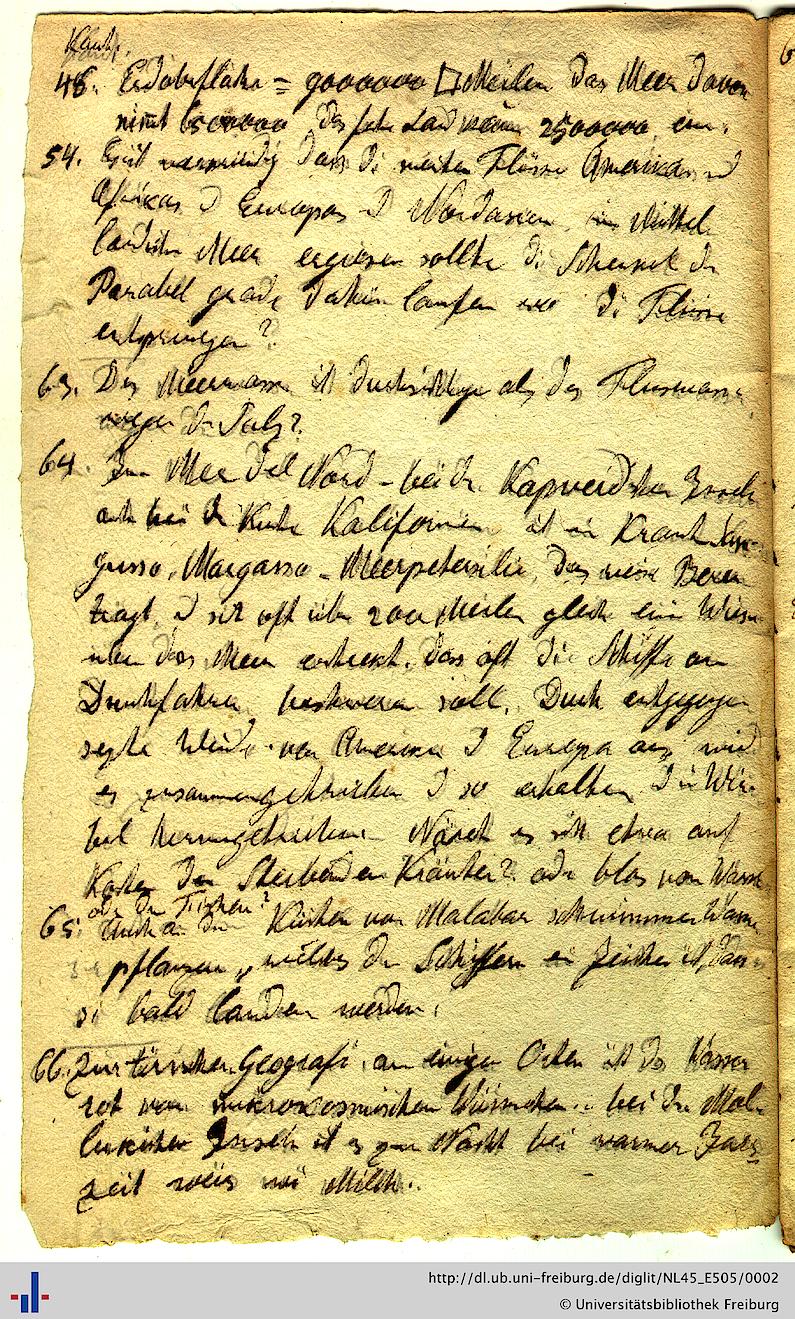 Kant.
46. Erdoberfläche = 9000000 □ Meilen Das Meer davon
nimt 6500000 das feste Land 2500000 ein.
54. Ists notwendig dass di meisten Flüsse Amerikas
Afrikas d Europas d Nordasien in Mittel
landische Meer ergiesen sollte di Schenkel der
Parabel grade dahin laufen wo di Flüsse
entspringen?
63. Das Meerwasser ist durchsichtiger als das Fluswasser
wegen der Salz?
64. Im Mee del Nord - bei den Kapverdschen Inseln
auch bei der Küste Kalifornien ist ein Kraut Sar-
gusso, Margasso - Meerpetersilie, das weise Beeren
trägt, d sich oft über 200 Meilen gleich einer Wiesen
das Meer erstreckt. das oft die Schiffe am
Durchfahren soll. Durch entgegen
sezte Winde von America d Europa aus wird
es zusammengetrieben d so erhalten, d in Wir-
bel herumgetrieben - Närt es sich etwa auf
Kosten der Sterbenden Kräuter? oder blos von Wasser
oder den Fischen?
65. Auch an den Küsten von Malabar schwimmen Wasser
pflanzen, welches den Schiffern ein Zeichen ist, dass
si bald landen werden.
66. Zur tirischen Geografi. an einigen Orten ist das Wasser
rot von mikroskosmischen Würmchen. bei den Mol-
lukischen Inseln ist es zur Nacht bei warmer Jares-
zeit weis wi Milch.
http://dl.ub.uni-freiburg.de/diglit/NL45_E505/0002
© Universitätsbibliothek Freiburg